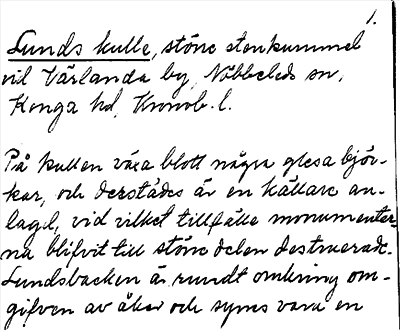 1.
Lunds kulle, större stenkummel
vid Värlanda by, Nöbbeleds sn,
Konga hd, Kronob. l.
På kullen växa blott några glesa björ-
kar, och derstädes är en källare an-
lagd, vid vilket tillfälle monumenter-
na blifvit till större delen destruerade.
Lundsbacken är rundt omkring om-
gifven av åker och synes vara en